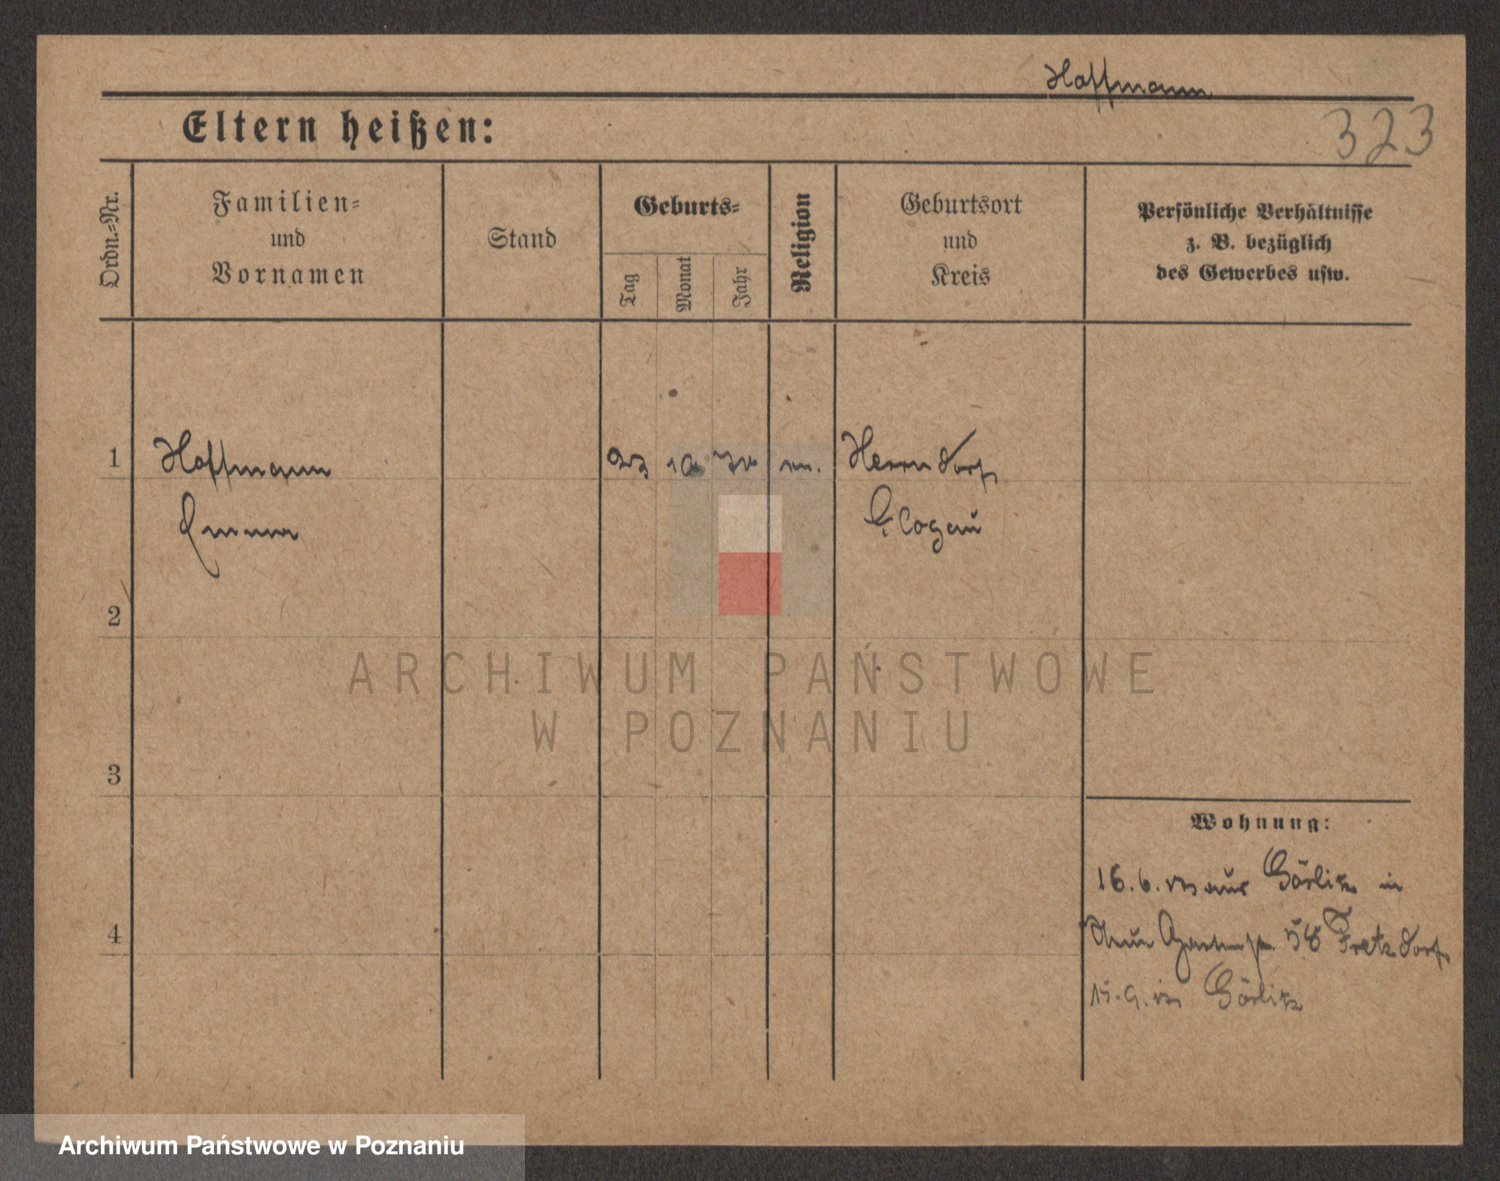 Hoffmann
323
Eltern heißen:
Ordn.-Nr.
Familien-
und
Vornamen
Stand
Geburts-
Tag
Monat
Jahr
Religion
Geburtsort
und
Kreis
Persönliche Verhältnisse
z. B. bezüglich
des Gewerbes usw.
1
Hoffmann
23
10
Herrndorf
Emma
Glogau
2
ARCHIWUM PAŃSTWOWE
W POZNANIU
3
Wohnung:
16. 6. aus Görlitz in
4
58
15. 9. Görlitz
Archiwum Państwowe w Poznaniu